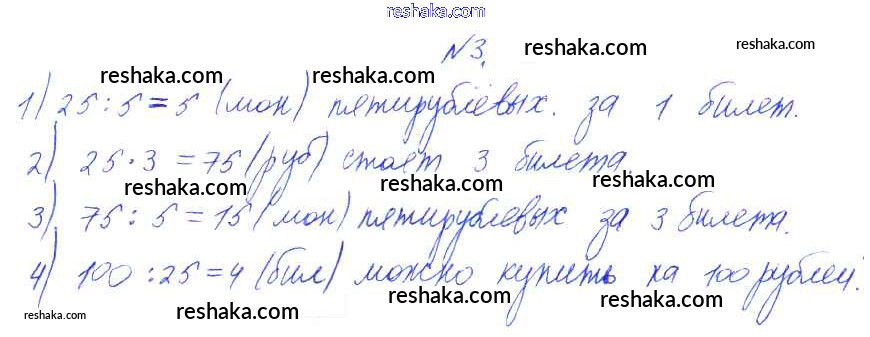 reshaka.com
№3. reshaka.com
reshaka.com reshaka.com reshaka.com
1) 25 : 5 = 5 (мон) пятирублёвых. за 1 билет.
2) 25 · 3 = 75 (руб) стоят 3 билета.
reshaka.com reshaka.com reshaka.com
3) 75 : 5 = 15 (мон) пятирублевых за 3 билета.
4) 100 : 25 = 4 (бил) можно купить на 100 рублей.
reshaka.com reshaka.com reshaka.com